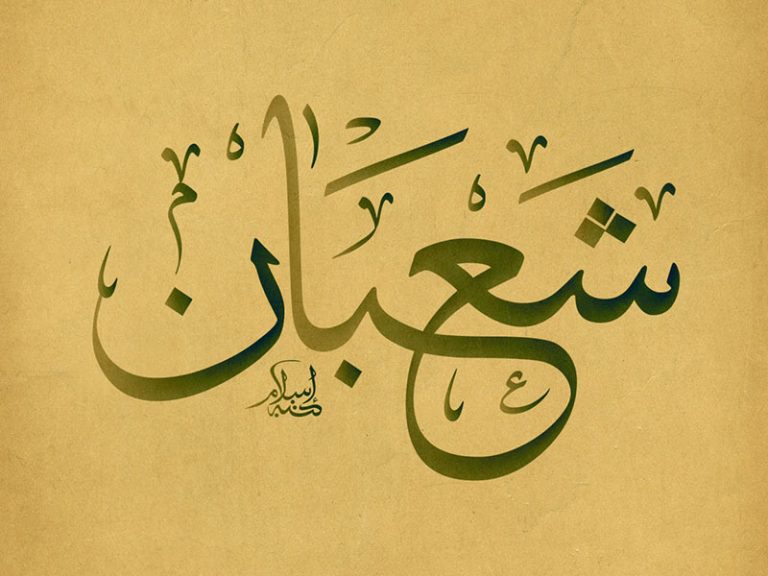 شَعْبَان
كتبه إسلام